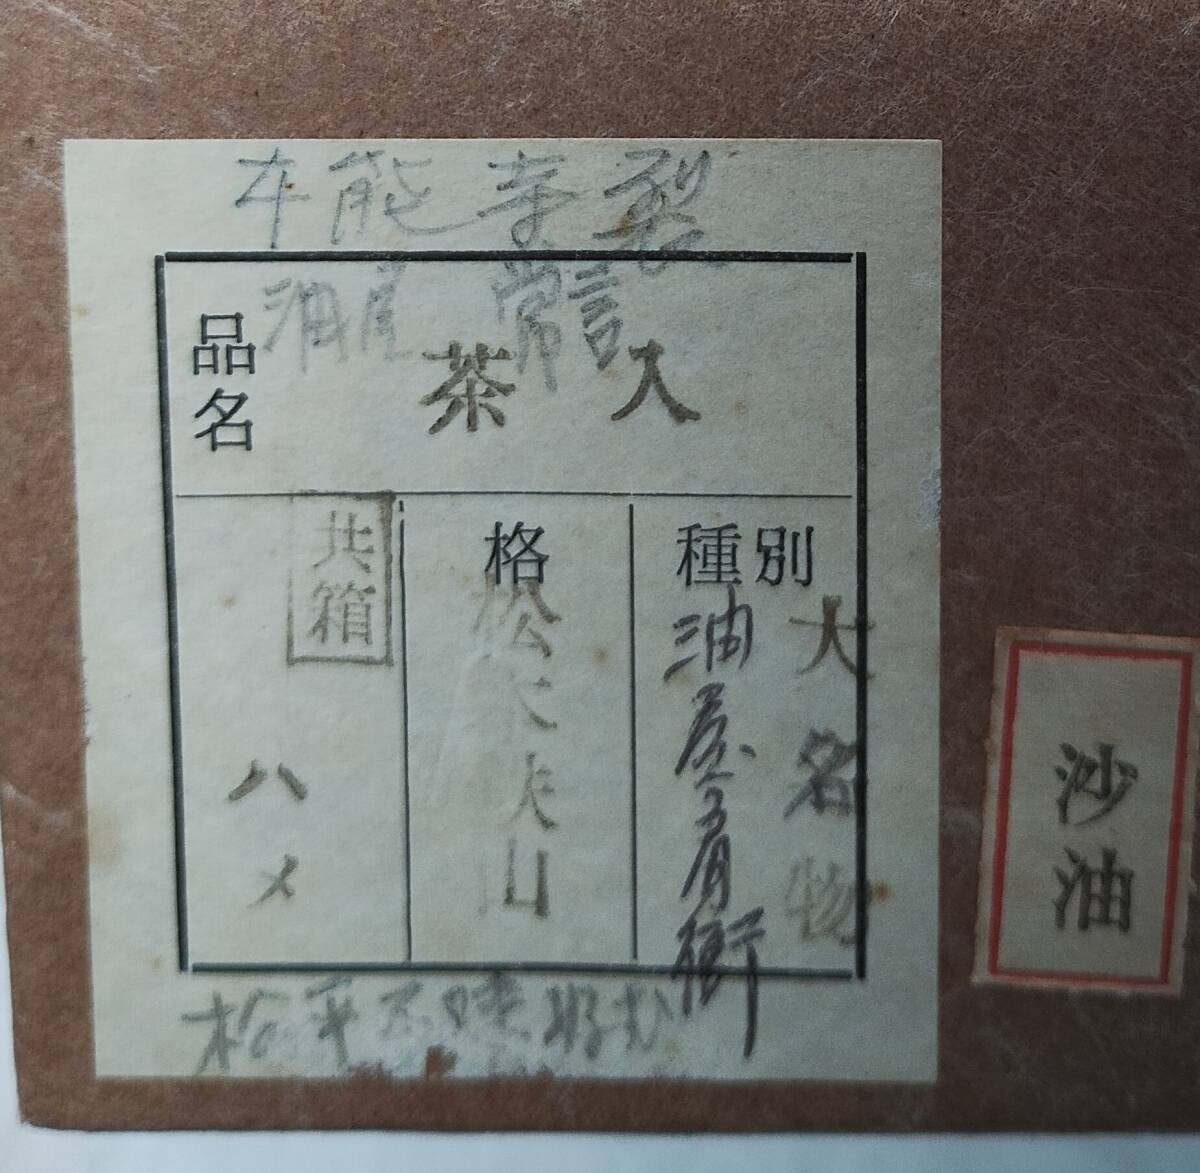 本能寺裂
油屋常言
品名
茶入
種別
大名物
油屋肩衝
格
共箱
ハメ
松平不昧好む
沙油